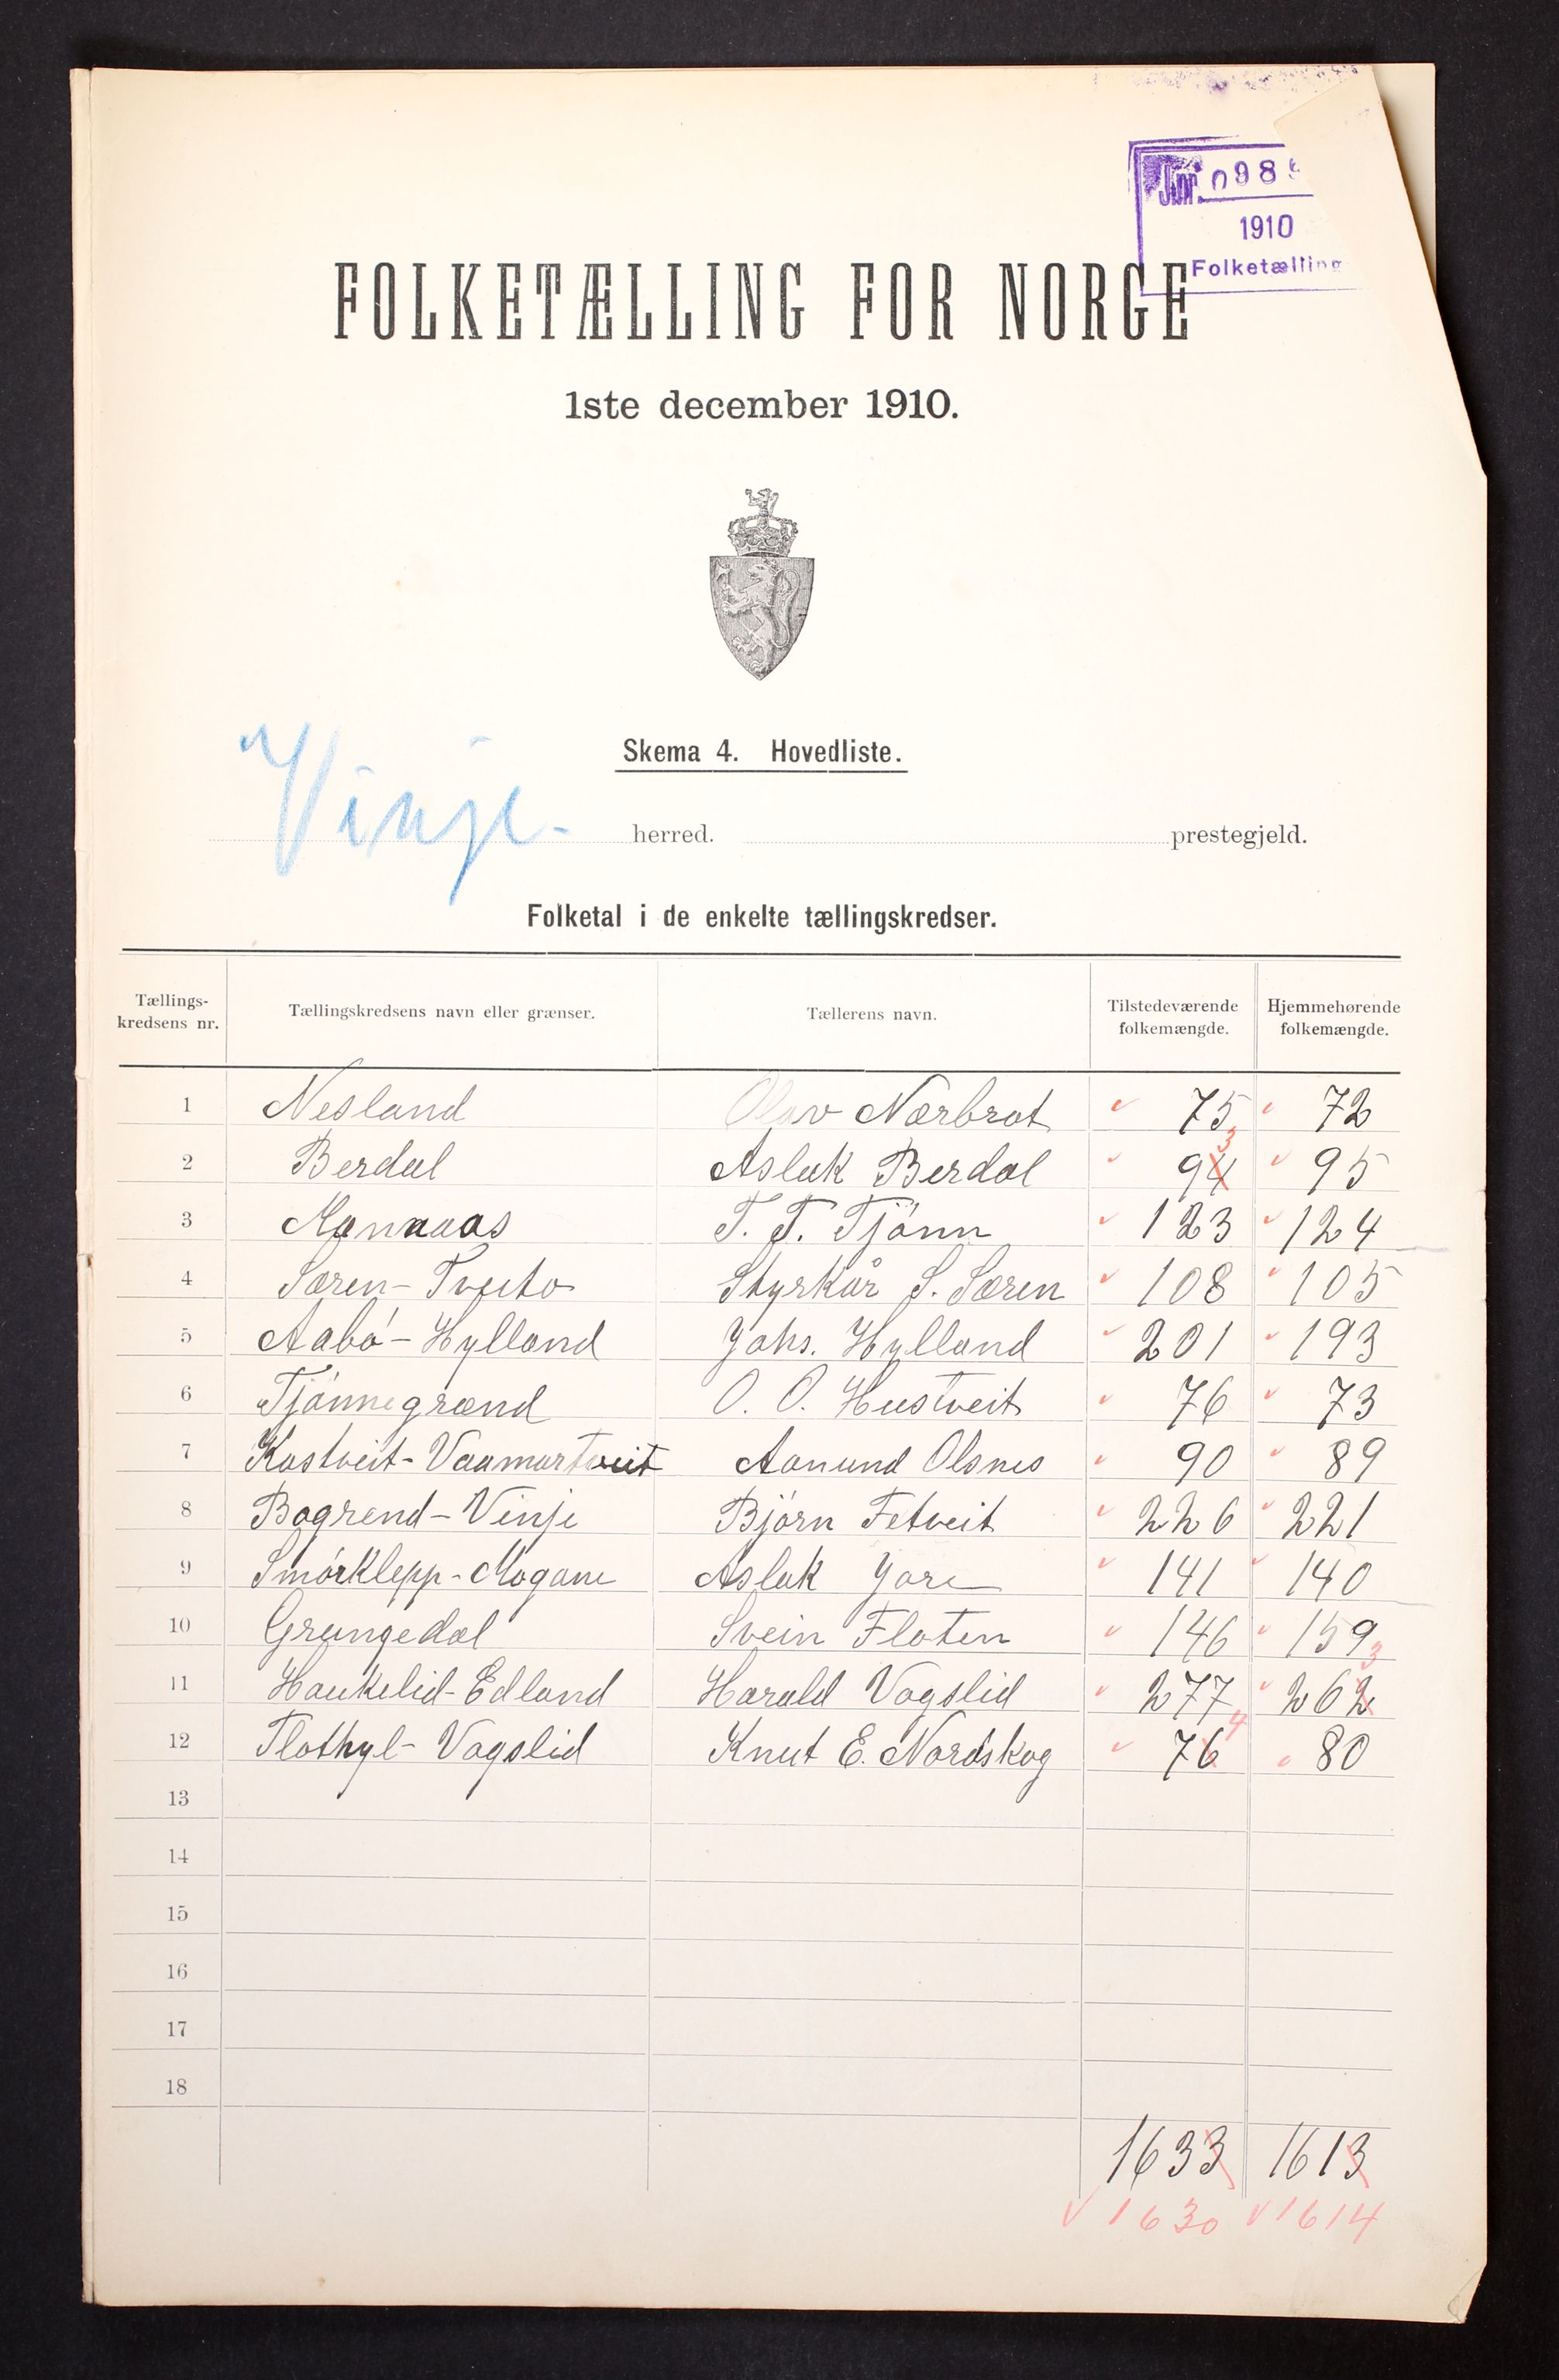 Jnr. 098
1910
Folketælling
FOLKETÆLLING FOR NORGE
1ste december 1910.
Skema 4. Hovedliste.
Vinje - herred. prestegjeld.
Folketal i de enkelte tællingskredser.
Tællings-kredsens nr. Tællingskredsens navn eller grænser. Tællerens navn. Tilstedeværende folkemængde. Hjemmehørende folkemængde.
1 Nesland Olav Nærbrot 75 72
2 Berdal Aslak Berdal 94 3 95
3 Mannaas T. T. Tjónn 123 124
4 Særen - Tveito Styrkår S. Særen 108 105
5 Aabó - Hylland Johs. Hylland 201 193
6 Tjónnegrænd O. O. Hustveit 76 73
7 Kostveit - Vaamartveit Aanund Olsnes 90 89
8 Bøgrend - Vinje Bjórn Fetveit 226 221
9 Smórklepp - Mogane Aslak Jore 141 140
10 Grungedal Svein Floten 146 159
11 Haukelid - Edland Harald Vagslid 277 262 3
12 Flothyl - Vagslid Knut E. Nordskog 76 4 80
13
14
15
16
17
18
1633 1613
1630 1614